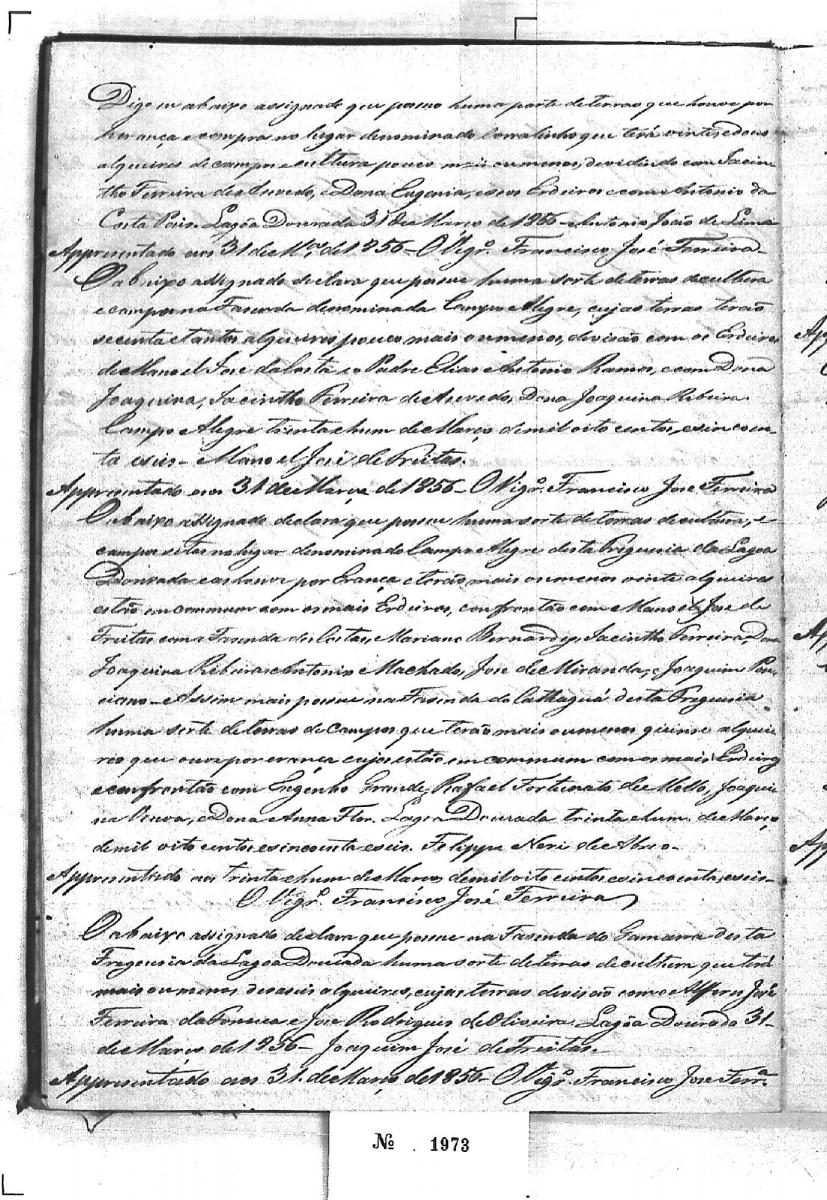 Digo eu abaixo assignado que posuo huma parte de terras que houve por
herança e compras no lugar denominado Corralinho que terá vinte e dous
alqueires de campo e cultura pouco mais ou menos, devedindo com Jacin
tho Ferreira de Asevedo, e Dona Eugenia, e seos Erdeiros e com Antonio da
Costa Pais. Lagôa Dourada 31 de Março de 1856 Antonio João de Lima
Appresentado aos 31 de Mço. de 1856 O Vigr.o Francisco José Ferreira
O abaixo assignado declara que possue huma sorte de terras de cultura
e campos na Fasenda denominada Campo Alegre, cujas terras terão
secenta e tantos alqueires pouco mais ou menos, divisão com os Erdeiros
de Manoel José da Costa e o Padre Elias e Antonio Ramos, e com Dona
Joaquina, Jacintho Ferreira de Asevedo, Dona Joaquina Ribeira
Campo Alegre trinta e hum de Março de mil oito centos, e sincoen
ta e seis Manoel José de Freitas.
Appresentado aos 31 de Março de 1856 O Vigr.o Francisco José Ferreira
O abaixo assignado declara, que possue huma sorte de terras de cultura, e
campos sitas no lugar denominado Campo Alegre desta Freguesia da Lagoa
Dourada e as houve por Erança e terão mais ou menos vinte alqueires
estão em commum com os mais Erdeiros, confrontão com Manoel José de
Freitas com a Fasenda das Costas, e Mariano Bernardes, Jacintho Ferreira, Dona
Joaquina Ribeira e Antonio Machado, José de Miranda, e Joaquim Pon
ciano Assim mais possue na Fasenda do Cattaguá desta Freguesia
huma sorte de terras de campos que terão mais ou menos quinse alquei
res que ouve por erança cujas estão em commum com os mais Erdeiros
e confrontão com Engenho Grande, Rafael Fortunato de Mello, Joaqui
na Viuva, e Dona Anna Flor. Lagoa Dourada trinta e hum de Março
de mil oito centos e sincoenta e seis. Felippe Neri de Abreo
Appresentado aos trinta e hum de Março de mil oito centos, e sincoenta, e seis
O Vigr.o Francisco José Ferreira
O abaixo assignado declara que possue na Fasenda do Gamarra desta
Freguesia da Lagoa Dourada huma sorte de terras de cultura que terá
mais ou menos deseseis alqueires, cujas terras divisão com o Alferes José
Ferreira da Fonseca e José Rodrigues de Oliveira. Lagôa Dourada 31
de Março de 1856 Joaquim José de Freitas.
Appresentado aos 31 de Março de 1856 O Vigr.o Francisco José Ferr.a
Ap
A
Ap
Nº 1973